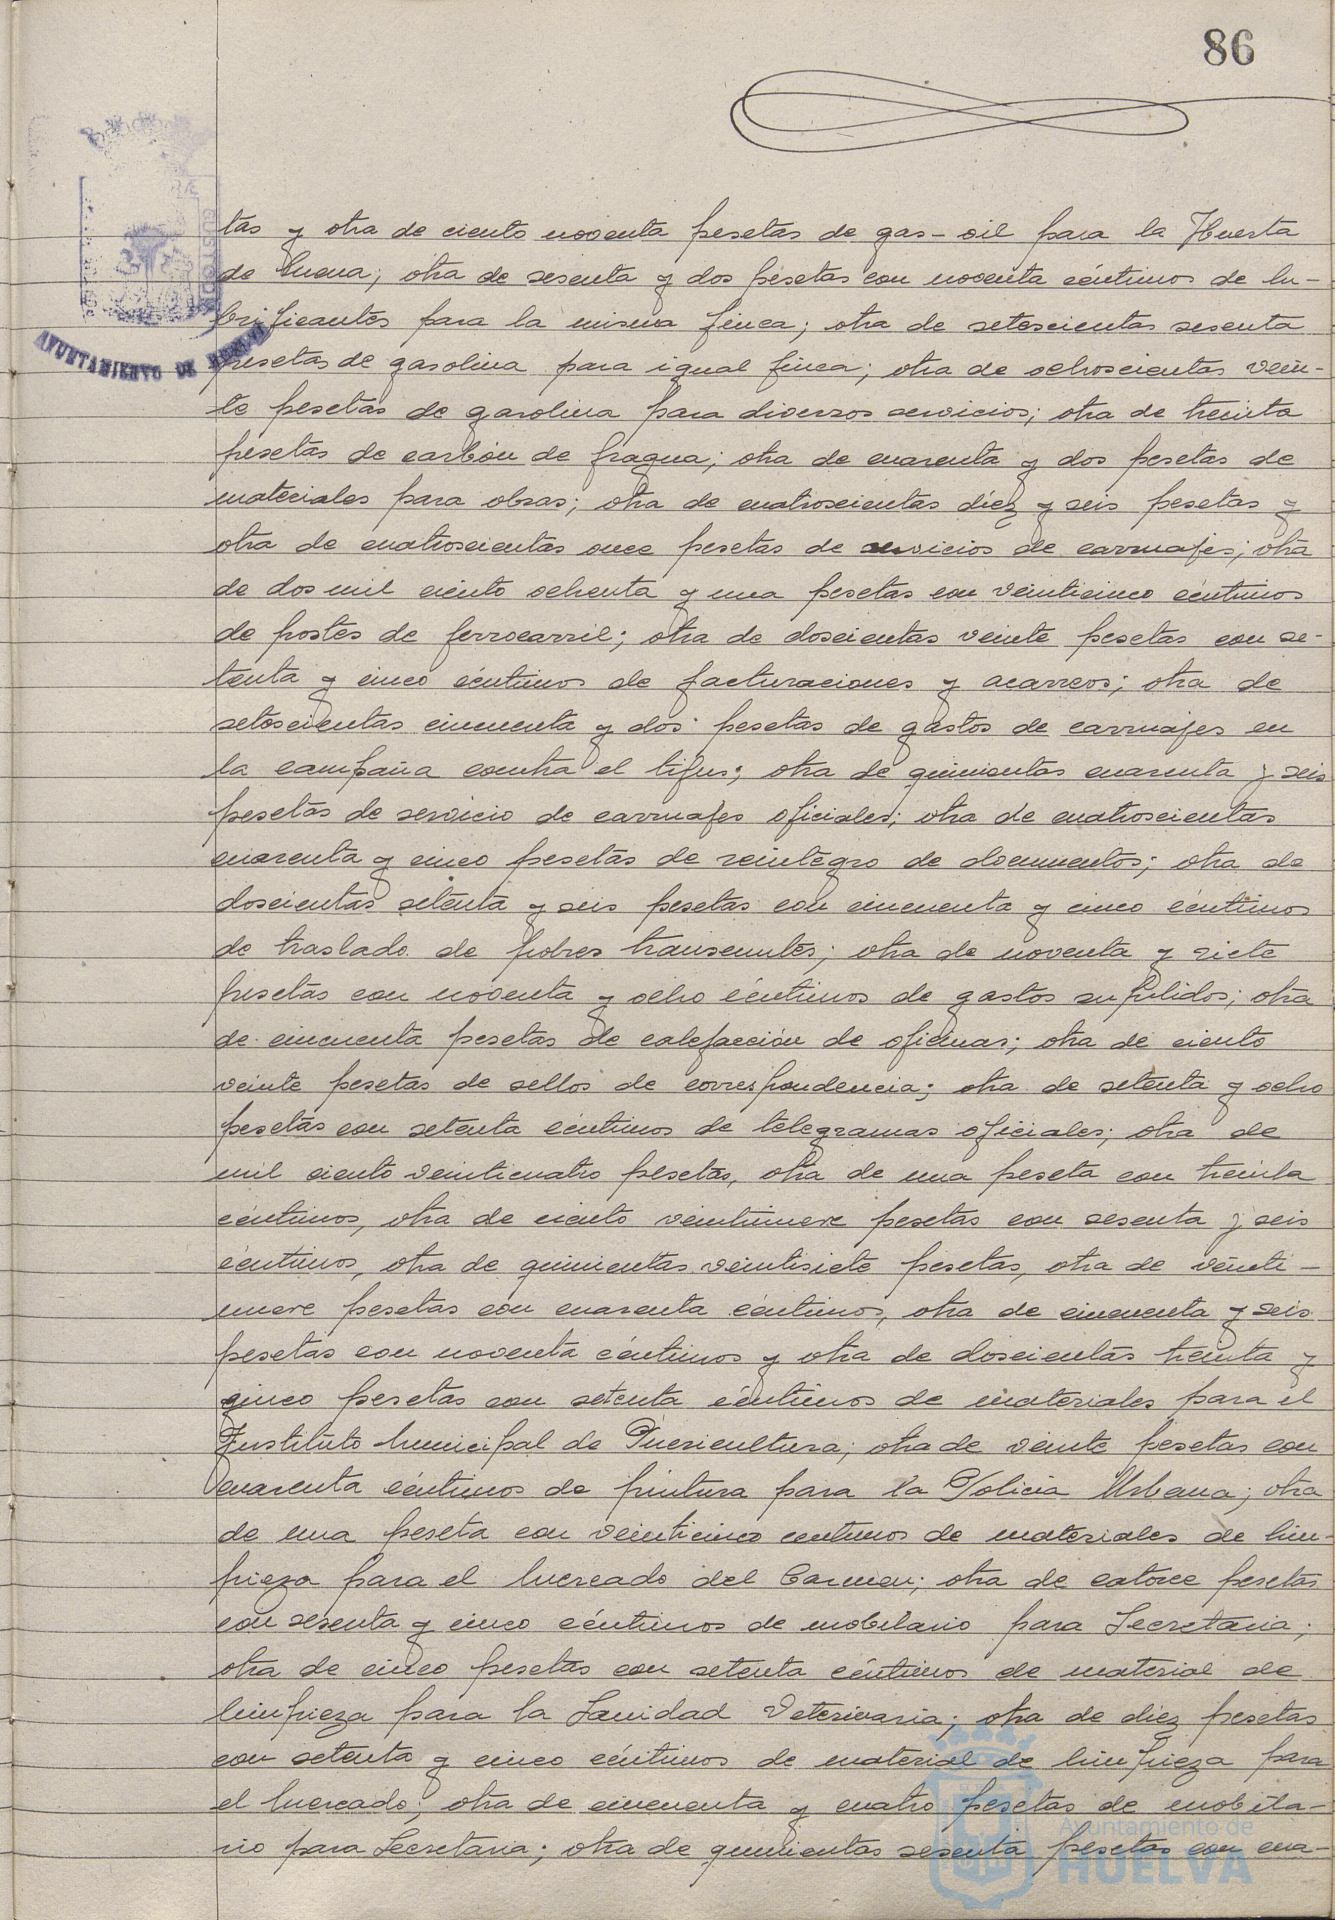 86
AYUNTAMIENTO DE HUELVA
tas y otra de ciento noventa pesetas de gas-oil para la Huerta
de Mena; otra de sesenta y dos pesetas con noventa céntimos de lu-
brificantes para la misma finca; otra de setescientas sesenta
pesetas de gasolina para igual finca; otra de ochoscientas vein-
te pesetas de gasolina para diversos servicios; otra de treinta
pesetas de carbón de fragua; otra de cuarenta y dos pesetas de
materiales para obras; otra de cuatroscientas diez y seis pesetas y
otra de cuatroscientas once pesetas de servicios de carruajes; otra
de dos mil ciento ochenta y una pesetas con veinticinco céntimos
de portes de ferrocarril; otra de doscientas veinte pesetas con se-
tenta y cinco céntimos de facturaciones y acarreos; otra de
setoscientas cincuenta y dos pesetas de gastos de carruajes en
la campaña contra el tifus; otra de quinientas cuarenta y seis
pesetas de servicio de carruajes oficiales; otra de cuatroscientas
cuarenta y cinco pesetas de reintegro de documentos; otra de
doscientas setenta y seis pesetas con cincuenta y cinco céntimos
de traslado de pobres transeuntes; otra de noventa y siete
pesetas con noventa y ocho céntimos de gastos suplidos; otra
de cincuenta pesetas de calefacción de oficinas; otra de ciento
veinte pesetas de sellos de correspondencia; otra de setenta y ocho
pesetas con setenta céntimos de telegramas oficiales; otra de
mil ciento veinticuatro pesetas, otra de una peseta con treinta
céntimos, otra de ciento veintinueve pesetas con sesenta y seis
céntimos, otra de quinientas veintisiete pesetas, otra de veinti-
nueve pesetas con cuarenta céntimos, otra de cincuenta y seis
pesetas con noventa céntimos y otra de doscientas treinta y
cinco pesetas con setenta céntimos de materiales para el
Instituto Municipal de Puericultura; otra de veinte pesetas con
cuarenta céntimos de pintura para la Policia Urbana; otra
de una peseta con veinticinco centimos de materiales de lim-
pieza para el Mercado del Carmen; otra de catorce pesetas
con sesenta y cinco céntimos de mobilario para Secretaria;
otra de cinco pesetas con setenta céntimos de material de
limpieza para la Sanidad Veterinaria; otra de diez pesetas
con setenta y cinco céntimos de material de limpieza para
el Mercado; otra de cincuenta y cuatro pesetas de mobila-
rio para Secretaria; otra de quinientas sesenta pesetas con cua-
Ayuntamiento de
HUELVA